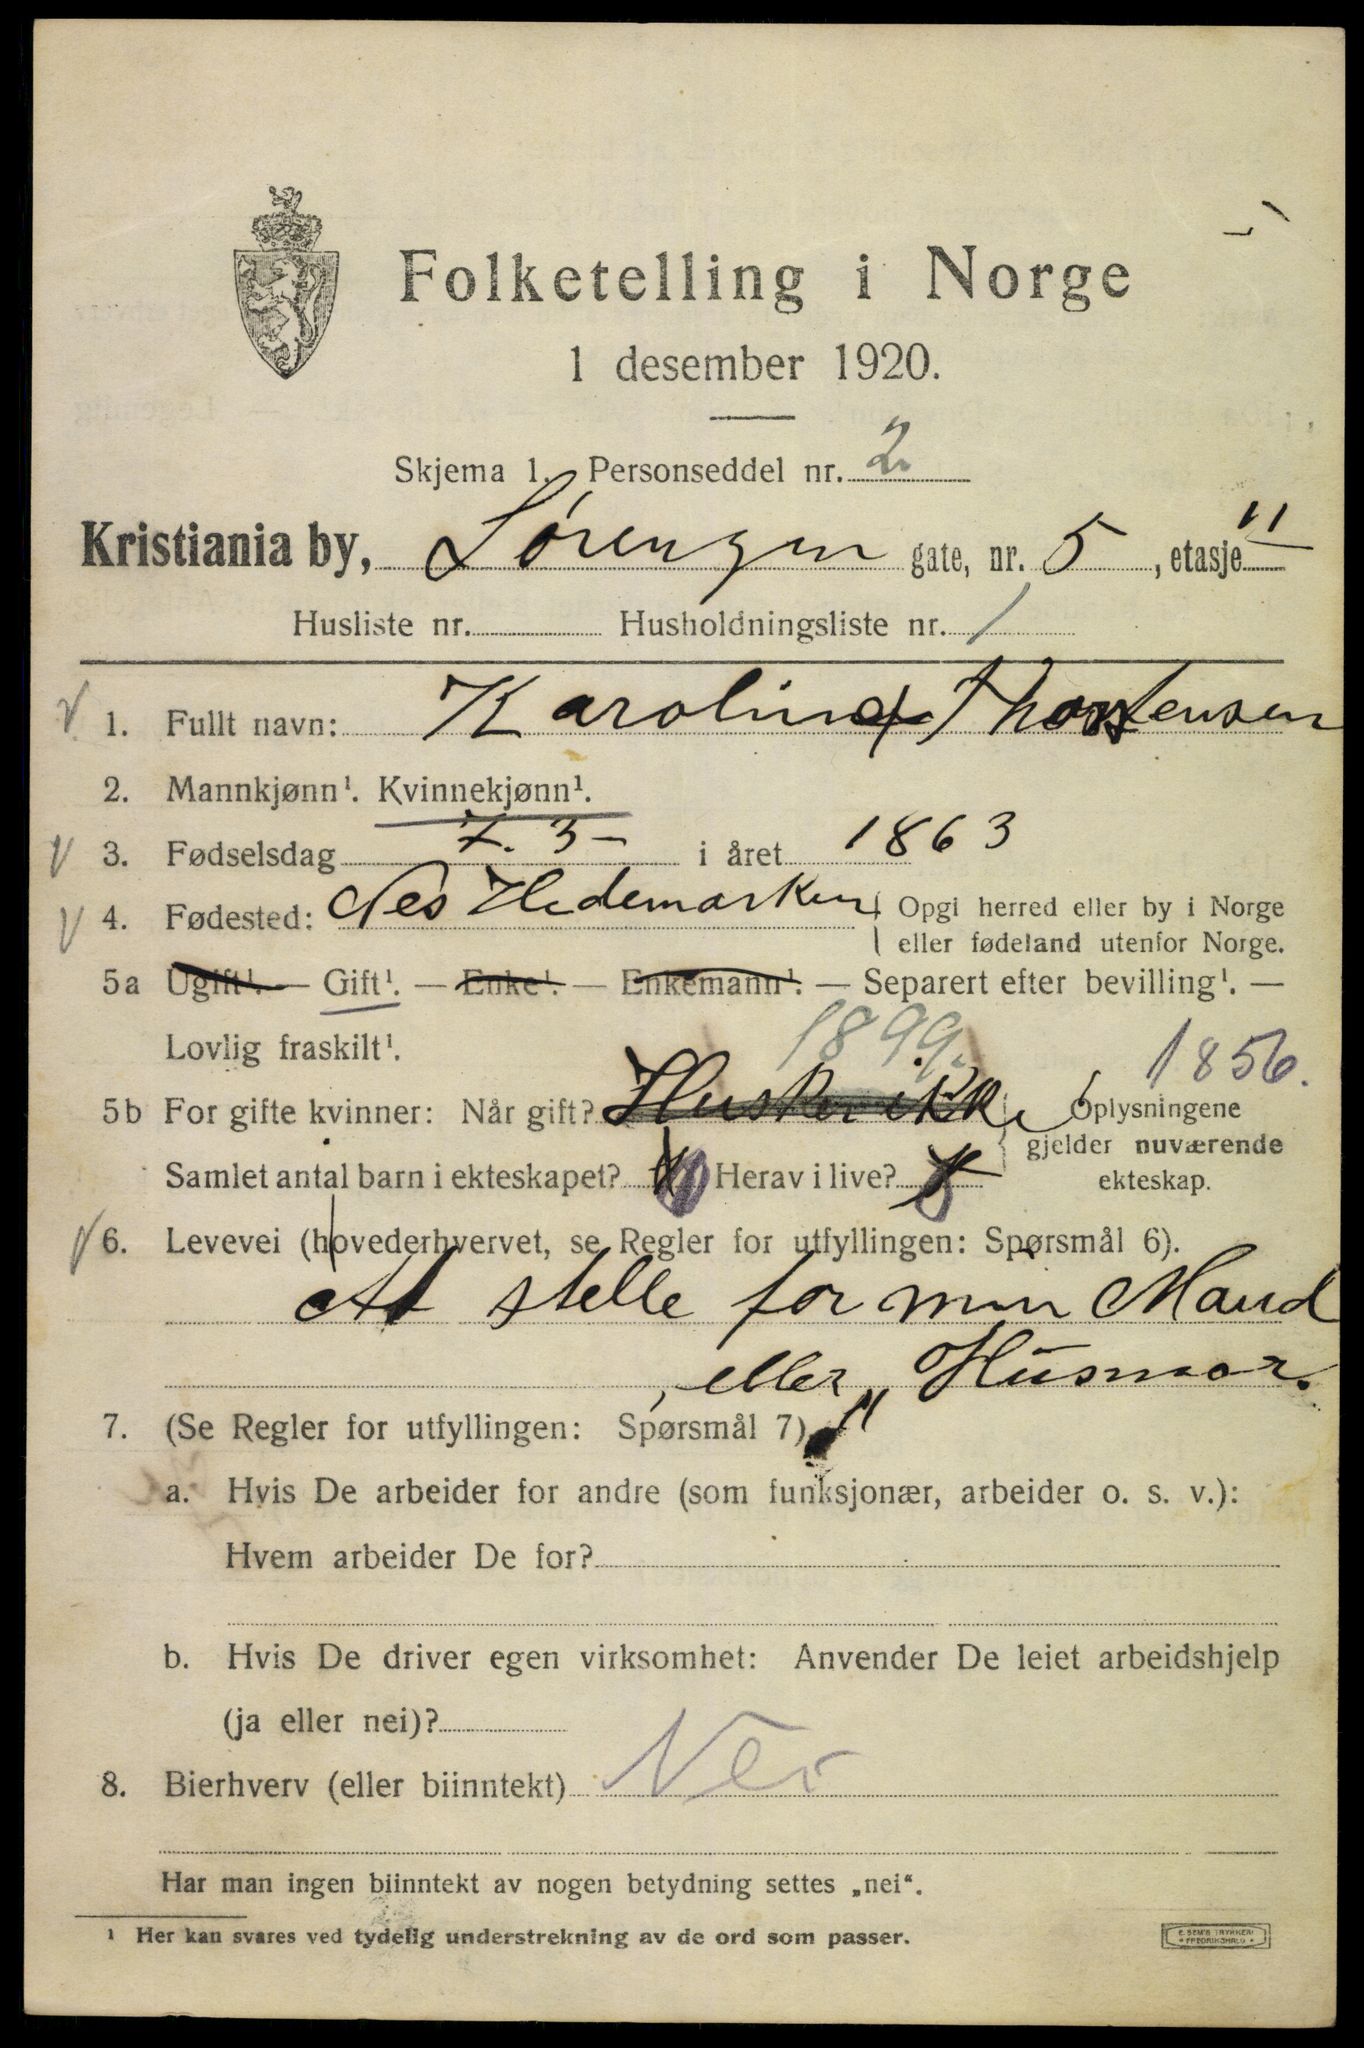 Folketelling i Norge
1 desember 1920.
Skjema 1. Personseddel nr. 2
Kristiania by, Sørengen gate, nr. 5, etasje 11
Husliste nr. Husholdningsliste nr. 1
1. Fullt navn: Karoline Thorstensen
2. Mannkjønn¹. Kvinnekjønn¹.
3. Fødselsdag 7. 3 - i året 1863
4. Fødested: Nes Hedemarken { Opgi herred eller by i Norge
eller fødeland utenfor Norge.
5a Ugift¹. — Gift¹. — Enke¹. — Enkemann¹. — Separert efter bevilling¹. —
Lovlig fraskilt¹. 1899. 1856.
5b For gifte kvinner: Når gift? Husker ikke { Oplysningene
gjelder nuværende
Samlet antal barn i ekteskapet? Herav i live? ekteskap.
6. Levevei (hovederhvervet, se Regler for utfyllingen: Spørsmål 6).
At stelle for min Mand
, eller „Husmor."
7. (Se Regler for utfyllingen: Spørsmål 7)
a. Hvis De arbeider for andre (som funksjonær, arbeider o. s. v.):
Hvem arbeider De for?
b. Hvis De driver egen virksomhet: Anvender De leiet arbeidshjelp
(ja eller nei)?
8. Bierhverv (eller biinntekt) Nei
Har man ingen biinntekt av nogen betydning settes „nei“.
¹ Her kan svares ved tydelig understrekning av de ord som passer.
E. SEM'S TRYKKERI
FREDRIKSHALD